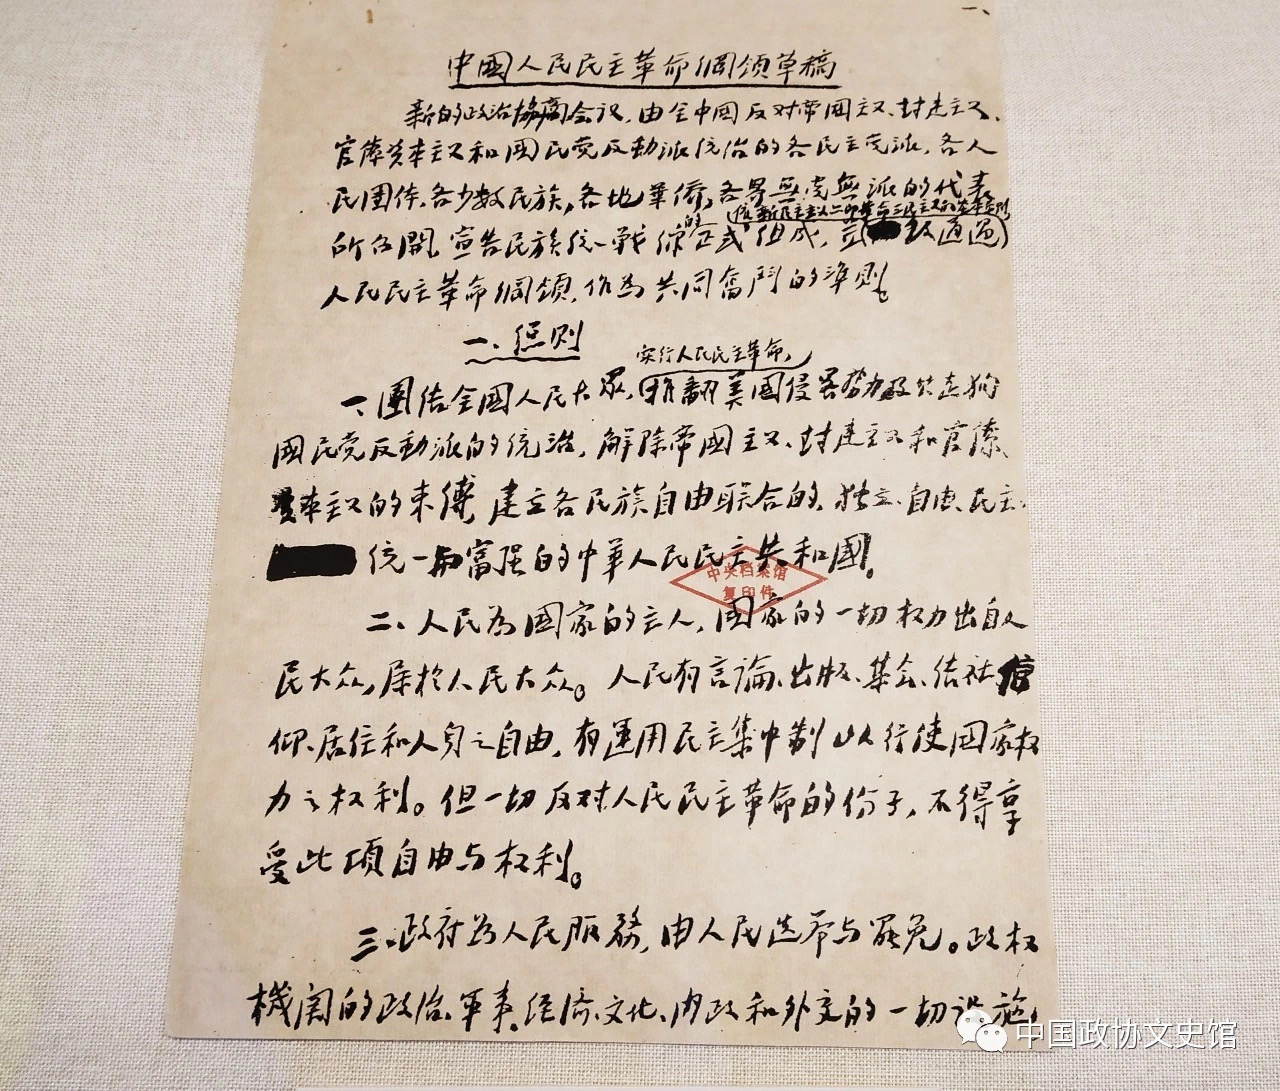 一、
中國人民民主革命綱领草稿
新的政治協商会议,由全中國反对帝国主义、封建主义、
官僚资本主义和國民党反動派统治的各民主党派,各人
民團体,各少数民族,各地華僑,各界無党無派的代表
所召開,宣告民族统一戰线的正式组成,並 致通過
依新民主主义 革命三民主义的
人民民主革命綱领,作为共同奮鬥的準则。
一、总则
实行人民民主革命,
一、團结全國人民大眾,推翻美国侵畧势力及其走狗
國民党反動派的统治,解除帝國主义、封建主义和官僚
资本主义的束缚,建立各民族自由联合的,独立、自由、民主、
统一与富强的中華人民民主共和國。
二、人民为國家的主人,國家的一切权力出自人
民大众,属於人民大众。人民有言論、出版、集会、结社、信
仰、居住和人身之自由,有運用民主集中制以行使国家权
力之权利。但一切反对人民民主革命的份子,不得享
受此項自由与权利。
三、政府为人民服務,由人民选举与罷免。政权
機関的政治、軍事、经济、文化、内政和外交的一切设施,
中央档案馆
复印件
中国政协文史馆